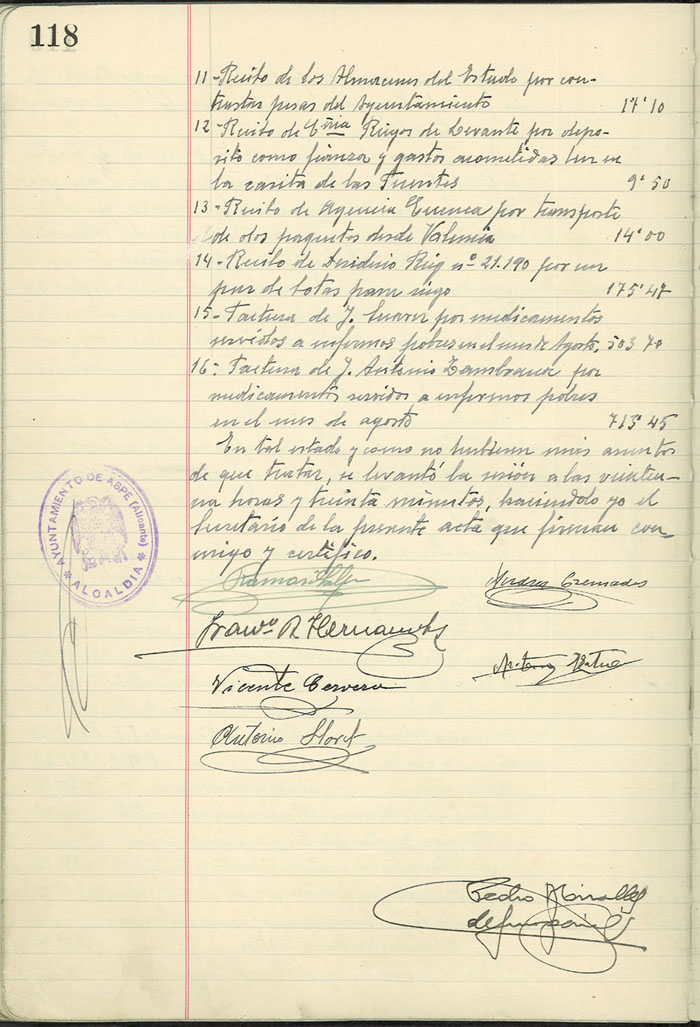 118
11-Recibo de los Almacenes del Estado por con-
trastar pesas del Ayuntamiento 17'10
12-Recibo de Cñía Riegos de Levante por depo-
sito como fianza y gastos acometidas luz en
la casita de las Fuentes 9'50
13-Recibo de Agencia Cuenca por transporte
de dos paquetes desde Valencia 14'00
14-Recibo de Desiderio Reig nº 21.190 por un
par de botas para riego 175'47
15-Factura de J. por medicamentos
servidos a enfermos pobres en el mes de Agosto. 503'70
16-Factura de J. Antonio Zambrana por
medicamentos servidos a enfermos pobres
en el mes de agosto 713'45
En tal estado y como no hubieran más asuntos
de que tratar, se levantó la sesión a las veintiu-
na horas y treinta minutos, haciéndolo yo el
Secretario de la presente acta que firman con-
migo y certifico.
AYUNTAMIENTO DE ASPE (Alicante)
* ALCALDIA *
Andres Cremades
Franco R Hernandez
Antonio
Vicente Cervera
Antonio Lloret
Pedro Miralles